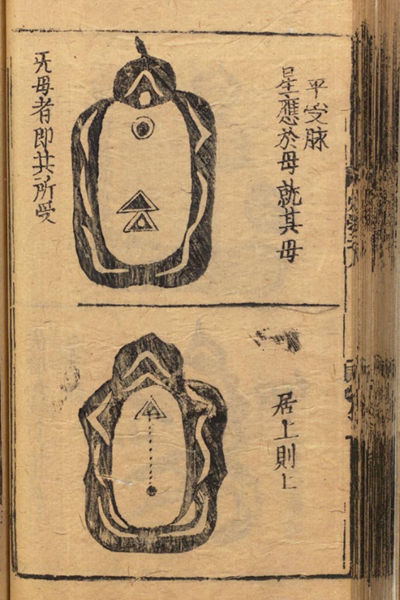 平受脉
星應於母就其母
旡母者即其所受
居上則上